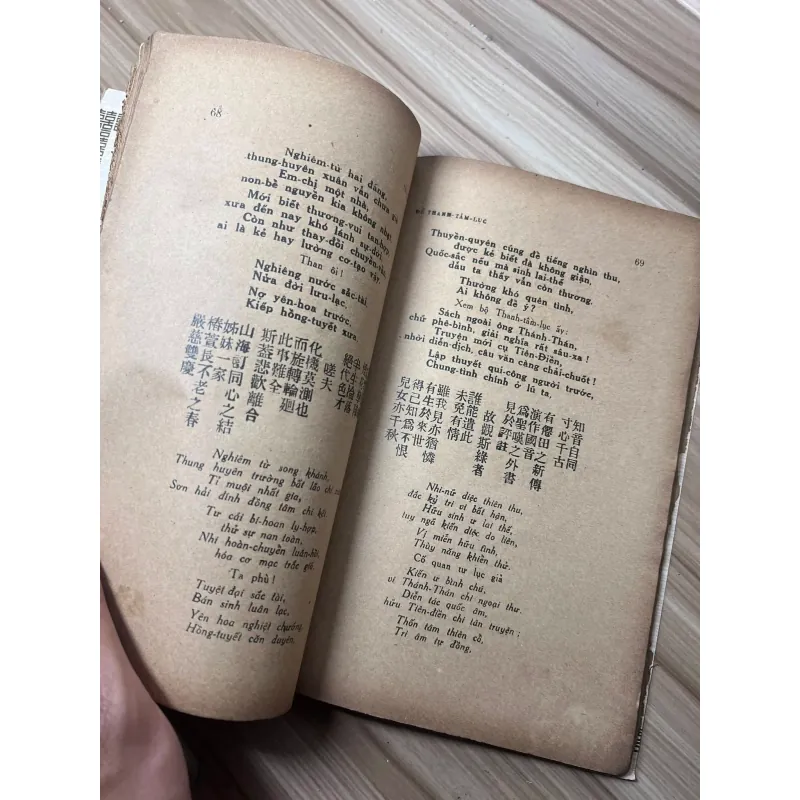 68
Nghiêm-từ hai đấng,
thung-huyên xuân vẫn chưa già
Em-chị một nhà,
non-bể nguyền kia không nhạt
Mới biết thương-vui tan-hợp,
xưa đến nay khó lánh sự-đời
Còn như thay-đổi chuyển-vần,
ai là kẻ hay lường cơ-tạo vật.
Than ôi!
Nghiêng nước sắc-tài
Nửa đời lưu-lạc.
Nợ yên-hoa trước,
Kiếp hồng-tuyết xưa.
嚴慈雙慶
椿萱長不老之春
姊妹一家
山海訂同心之結
斯葢悲歡離合
此事雖全
而旋轉輪迴
化機莫測也
嗟夫
絕代色才
Nghiêm từ song khánh,
Thung huyên trường bất lão chi xuân
Tỉ muội nhất gia,
Sơn hải đính đồng tâm chi kết
Tư cái bi-hoan ly-hợp,
thử sự nan toàn,
Nhi hoàn-chuyển luân-hồi,
hóa cơ mạc trắc giã.
Ta phù!
Tuyệt đại sắc tài,
Bán sinh luân lạc,
Yên hoa nghiệt chướng,
Hồng-tuyết cỗn duyên,
THANH-TÂM-LỤC
69
Thuyền-quyên cúng để tiếng nghìn thu,
được kẻ biết đà không giận,
Quốc-sắc nếu mà sinh lai-thế
dẫu ta thấy vẫn còn thương.
Thưởng khó quên tình,
Ai không để ý?
Xem bộ Thanh-tâm-lục ấy:
Sách ngoài ông Thánh-Thán,
chữ phê-bình, giải nghĩa rất sâu-xa!
Truyện mới cụ Tiên-Điền,
nhời diễn-dịch, câu văn càng chải-chuốt!
Lập thuyết qui-công người trước,
Chung-tình chính ở lũ ta,
兒女亦千秋
得己知爲不恨
有生於來世
雖我見亦猶憐
未免有情
誰能遣此
故觀斯綠者
見於評註
爲聖嘆之外書
演作國音
有僊田之新傳
寸心千古
知音自同
Nhi-nữ diệc thiên thu,
đắc kỷ tri vi bất hận,
Hữu sinh ư lai thế,
tuy ngã kiến diệc do liên,
Vị miễn hữu tình,
Thùy năng khiển thử.
Cố quan tư lục giả
Kiến ư bình chú,
vi Thánh-Thán chi ngoại thư.
Diễn tác quốc âm,
hữu Tiên-điền chi tân truyện;
Thốn tâm thiên cổ,
Tri âm tự đồng,